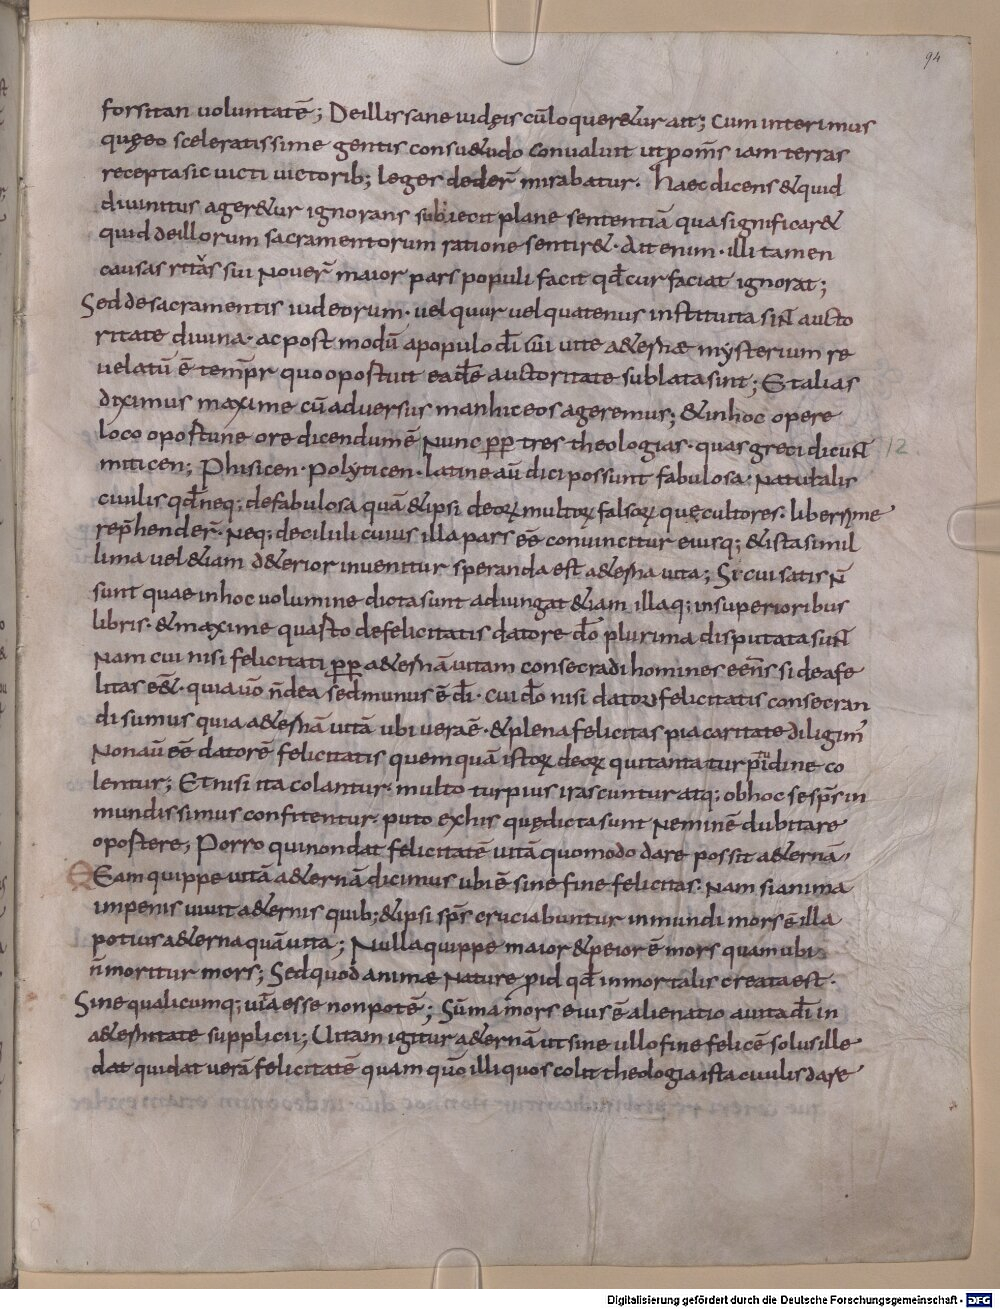 94
forsitan voluntatē; Deillis sane iudęis cūloquerer&ur ait; Cum interim us
quęeo sceleratissime gentis consu&udo convaluit utpōms iam terras
receptasic victi victorib; leges dedeṝ mirabatur. haec dicens &quid
divinitus ager&ur ignorans subiecit plane sententiā qua significar&
quid deillorum sacramentorum ratione sentir&. Ait enim. illi tamen
causas ritās sui Noveṝ maior pars populi facit qđcur faciat ignorat;
Sed desacramentis iudeorum. vel quur velquatenus instituta siNt aucto
ritate divina. ac post modū apopulo dī cui vite a&ernae mysterium re
velatū ē temp̄r quooportuit eadē auctoritate sublata sint; Et alias
diximus maxime cūadversus manhiceos ageremus; &inhoc opere
loco oportune ore dicendumē Nunc pp tres theologias. quas greci dicuNt
12.
miticen; Phisicen. Polyticen. latine aū dici possunt fabulosa. Naturalis
civilis qđneq; defabulosa quā &ipsi deorū multorū falsorū quę cultores. liberṙime
rep̄henderꝰ. Neq; decivili cuius illa pars eē convincitur eiusq; &ista simil
lima vel &iam d&erior invenitur speranda est a&erna vita; Si cui satis N̄
sunt quae inhoc volumine dicta sunt adiungat &iam illaq; insuperioribus
libris. &maxime quarto defelicitatis datore dō plurima disputata suNt
Nam cui nisi felicitati pp a&ernā vitam consecradi homines eēns si deafe
licitas eēt. quia vō n̄dea sedmunus ē dī. cui dō nisi datori felicitatis consecran
di sumus quia a&ernā vitā ubi veraē. &plena felicitas pia caritate diligim̄
Nonaū eē datorē felicitatis quemquā istorū deorū qui tanta turpitudine co
lentur; Et nisi ita colantur. multo turpius irascuntur atq; obhoc sesp̄s in
mundissimus confitentur. puto exhis quędicta sunt Neminē dubitare
oportere; Porro quinondat felicitatē vitā quomodo dare possit a&ernā;
Eam quippe vitā a&ernā dicimus ubi ē sine fine felicitas. Nam si anima
inpenis vivit a&ernis quib; &ipsi sp̄s cruciabuntur inmundi mors ē illa
potius a&erna quā vita; Nulla quippe maior &peior ē mors quam ubi
n̄moritur mors; Sed quod animae Nature p̄id qđ inmortalis creata est.
Sine qualicumq; vita esse non potē; Sūma mors eius ē alienatio avita dī in
a&ernitate supplicii; Vitam igitur a&ernā ut sine ullo fine felicē solus ille
dat quidat verā felicitatē quam quō illi quos colit theologia ista civilis dare
Digitalisierung gefördert durch die Deutsche Forschungsgemeinschaft - DFG